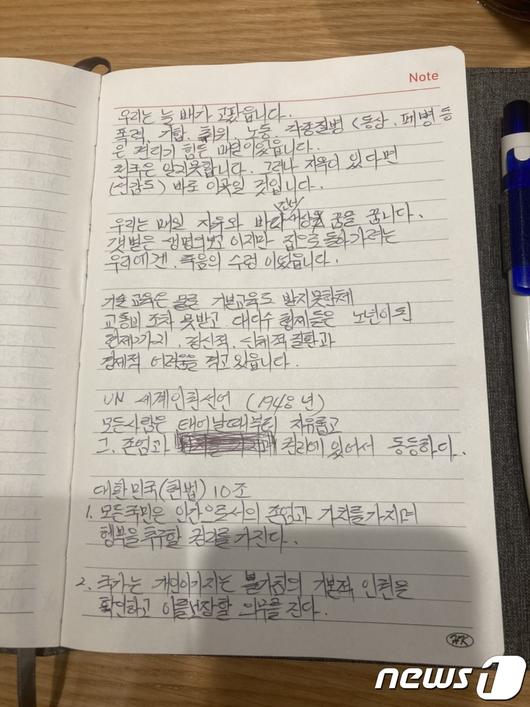 Note
우리는 늘 배가 고팠읍니다.
폭력, 기합, 추위, 노동, 각종질병 (동상, 폐병 등
은 견디기 힘든 매일이었읍니다.
천국은 알지못합니다. 그러나 지옥이 있다면
(선감도) 바로 이곳일 것입니다.
우리는 매일 자유와 바다 건너 세상 꿈을 꿉니다.
갯벌은 생명의 보고 이지만 집으로 돌아가려는
우리에겐, 죽음의 수렁 이었읍니다.
기술교육은 물론 기본교육도 받지못한체
교통비 조차 못받고 대다수 형제들은 노년이된
현제까지, 정신적, 신체적질환과
경제적 어려움을 격고 있읍니다.
UN 세계인권선언 (1948년)
모든사람은 태어날때부터 자유롭고
그, 존엄과 권리에 있어서 동등하다.
대한민국(헌법) 10조
1. 모든국민은 인간으로서의 존엄과 가치를 가지며
행복을 추구할 권리를 가진다.
2. 국가는 개인이가지는 불가침의 기본적 인권을
확인하고 이를보장할 의무를 진다.
HK
news1